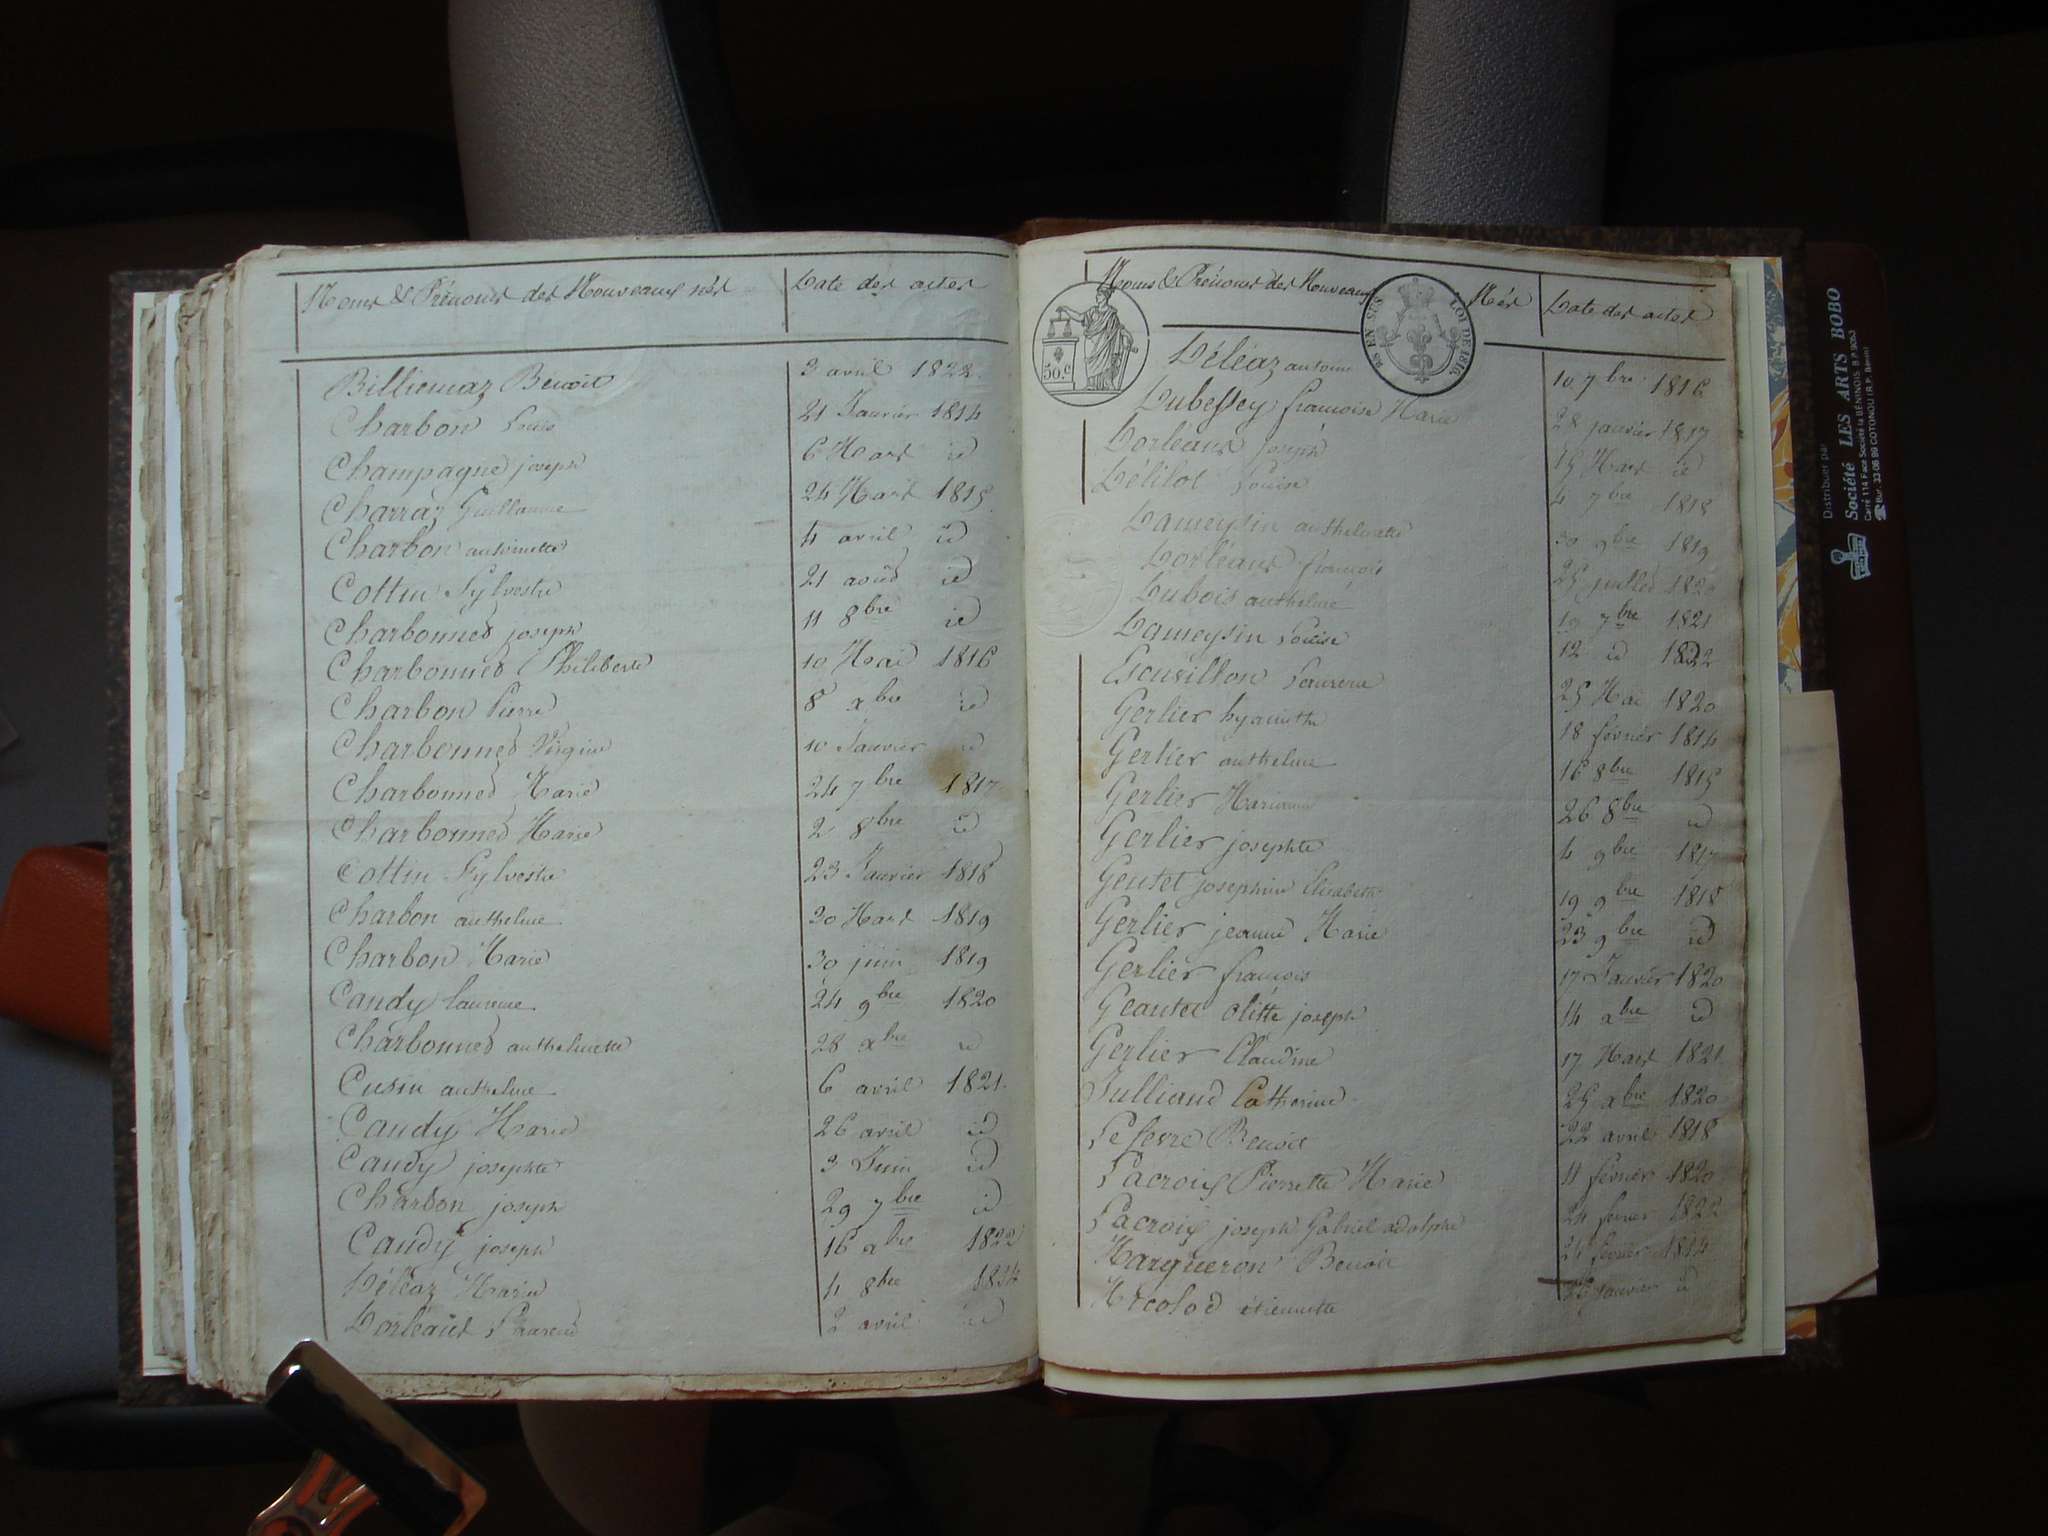 Noms & Prénoms des Nouveaux nés Date des actes
Billiemaz Benoit 3 avril 1822
Charbon Louis 21 Janvier 1814
Champagne joseph 6 Mars id
Charraz Guillaume 24 Mars 1815
Charbon antoinette 4 avril id
Cottin Sylvestre 21 août id
Charbonned joseph 11 8bre id
Charbonned Philiberte 10 Mai 1816
Charbon Pierre 8 xbre id
Charbonned Virginie 10 Janvier id
Charbonned Marie 24 7bre 1817
Charbonned Marie 2 8bre id
Cottin Sylvestre 23 Janvier 1818
Charbon anthelme 30 Mars 1819
Charbon Marie 30 juin 1819
Candy laurence 24 9bre 1820
Charbonned anthelmette 28 xbre id
Cusin anthelme 6 avril 1821
Candy Marie 26 avril id
Candy josephte 3 Juin id
Charbon joseph 29 7bre id
Candy joseph 16 xbre 1822
Déléaz Marie 4 8bre
Dorléans Laurend 2 avril id
Noms & Prénoms des Nouveaux Nés Date des actes
50.c
EN SUS LOI DE 1816
Déléaz antoine 10 7bre 1816
Dubessey françoise Marie 28 janvier 1817
Dorléans joseph 15 Mars id
Délilot Louise 4 7bre 1818
Dameysin anthelmette 30 9bre 1819
Dorléans françois 25 juilled 1820
Dubois anthelme 19 7bre 1821
Dameysin Louise 12 id 1822
Escusillon Laurence 25 Mai 1820
Gerlier hyacinthe 18 février 1814
Gerlier anthelme 16 8bre 1815
Gerlier Marianne 26 8bre id
Gerlier josephte 4 9bre 1817
Gentet josephine Elisabeth 19 9bre 1818
Gerlier jeanne Marie 23 9bre id
Gerlier françois 17 Janvier 1820
Geantet joseph 14 xbre id
Gerlier Claudine 17 Mars 1821
Julliand Catherine 25 xbre 1820
Lefevre Benoit 22 avril 1818
Lacroix Pierrette Marie 11 février 1820
Lacroix joseph Gabriel adolphe 24 février 1822
Margueron Benoit 24 février 1814
Nicolod étiennette Janvier id
Distribuer par
Société LES ARTS BOBO
Carré 114 Face Société la BÉNINOIS. B.P. 9053
Bur. 33 06 99 COTONOU (R.P. Bénin)